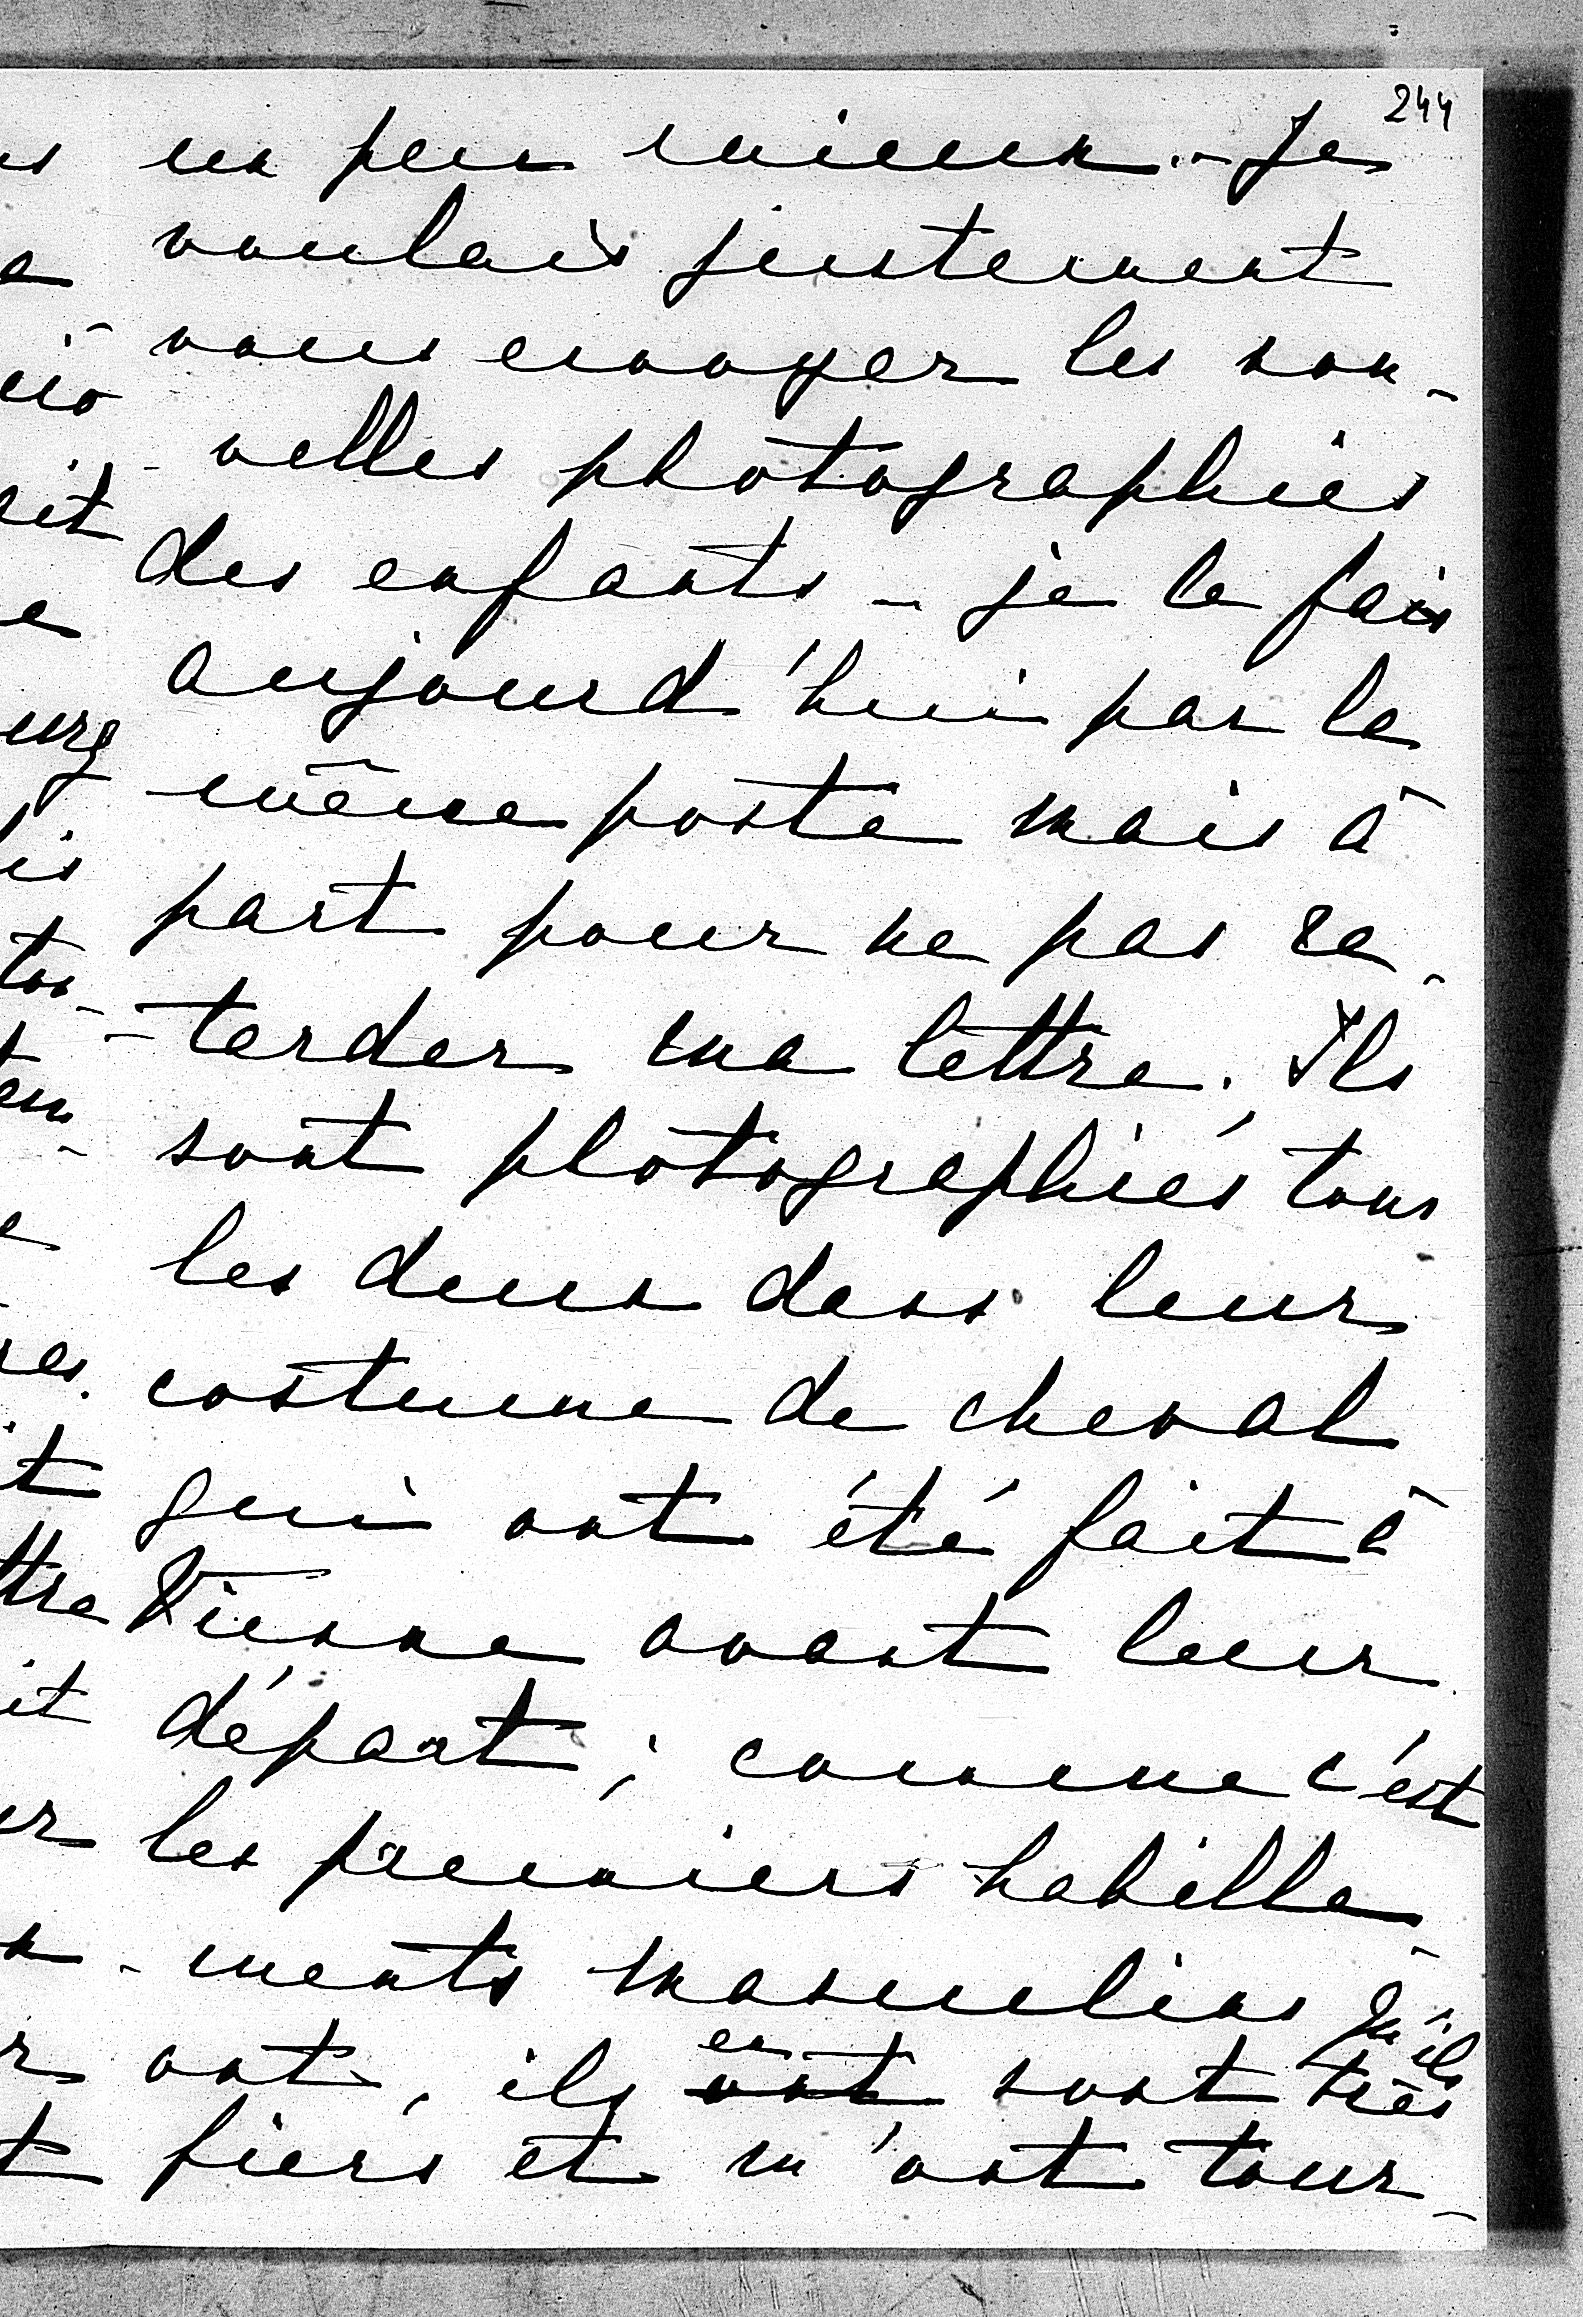 244
un peu mieux. - Je
voulais justement
vous envoyer les nou-
-velles photographies
des enfants - je le fais
aujourd'hui par la
même poste mais à
part pour ne pas re-
-tarder ma lettre. Ils
sont photographiés tous
les deux dans leur
costume de cheval
qui ont été fait à
Vienne avant leur
départ ; comme c'est
les premiers habille-
-ments masculins qu'ils
ont, ils ont en sont très
fiers et m'ont tour-